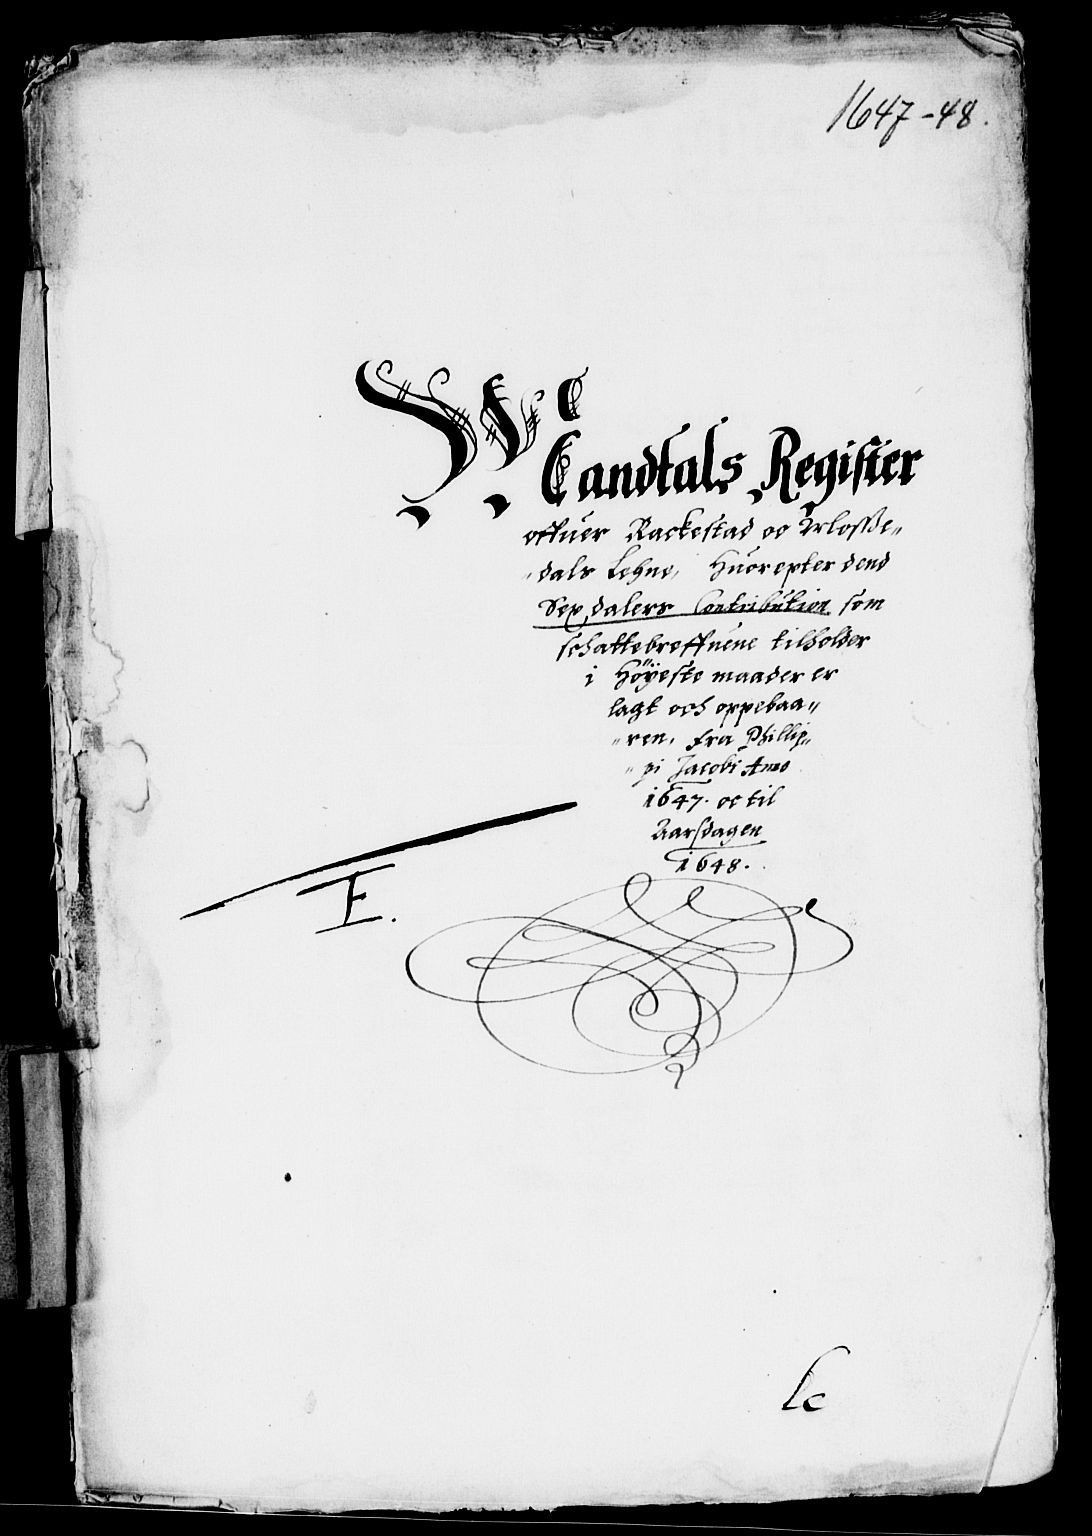 1647-48.
Et
Candtals Register
offuer Rackestad oc Urlosße„
„dals Lehne, Huorepter dend
Sex dalers Contribution som
schattebreffuene tilholder
i Höyeste maader er
lagt och oppebaa„
„ren, fra Phillip„
„pi Jacobi Anno
1647. oc til
Aarsdagen
1648.
E.